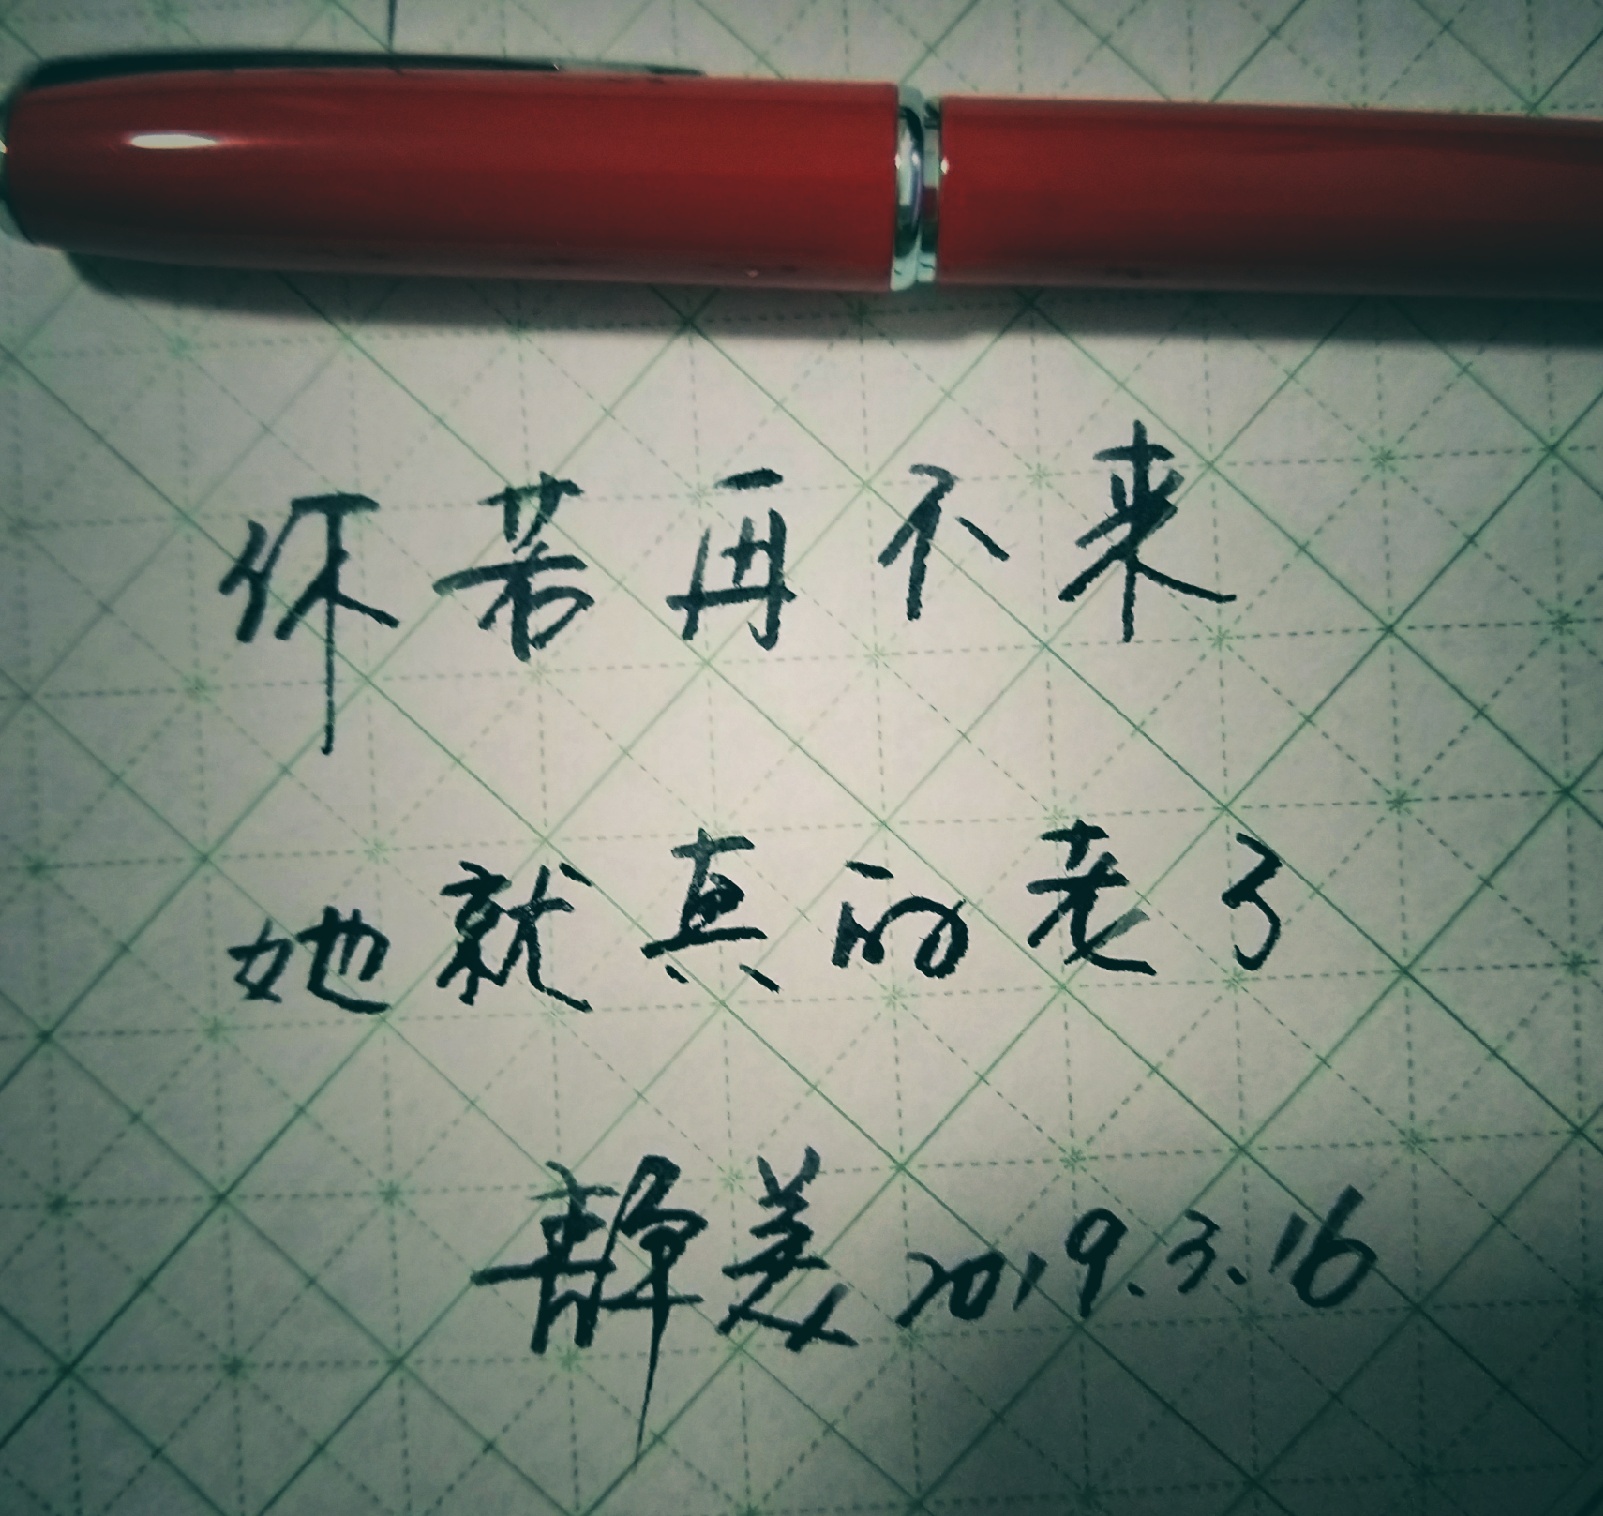 你若再不来
她就真的老了
静美 2019.3.16